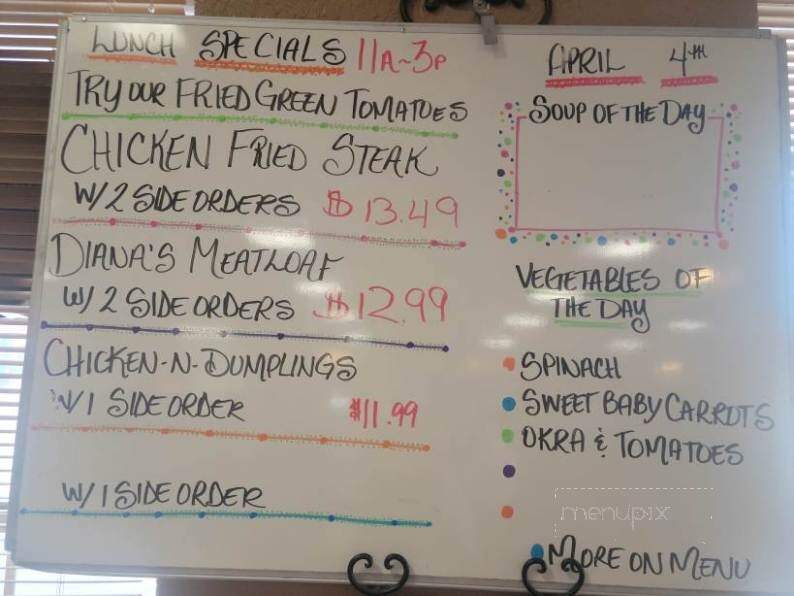 LUNCH SPECIALS 11A-3P
TRY OUR FRIED GREEN TOMATOES
CHICKEN FRIED STEAK
W/2 SIDE ORDERS $13.49
DIANA'S MEATLOAF
W/2 SIDE ORDERS $12.99
CHICKEN-N-DUMPLINGS
W/1 SIDE ORDER $11.99
W/1 SIDE ORDER
APRIL 4TH
SOUP OF THE DAY
VEGETABLES OF
THE DAY
SPINACH
SWEET BABY CARROTS
OKRA & TOMATOES
menupix
MORE ON MENU